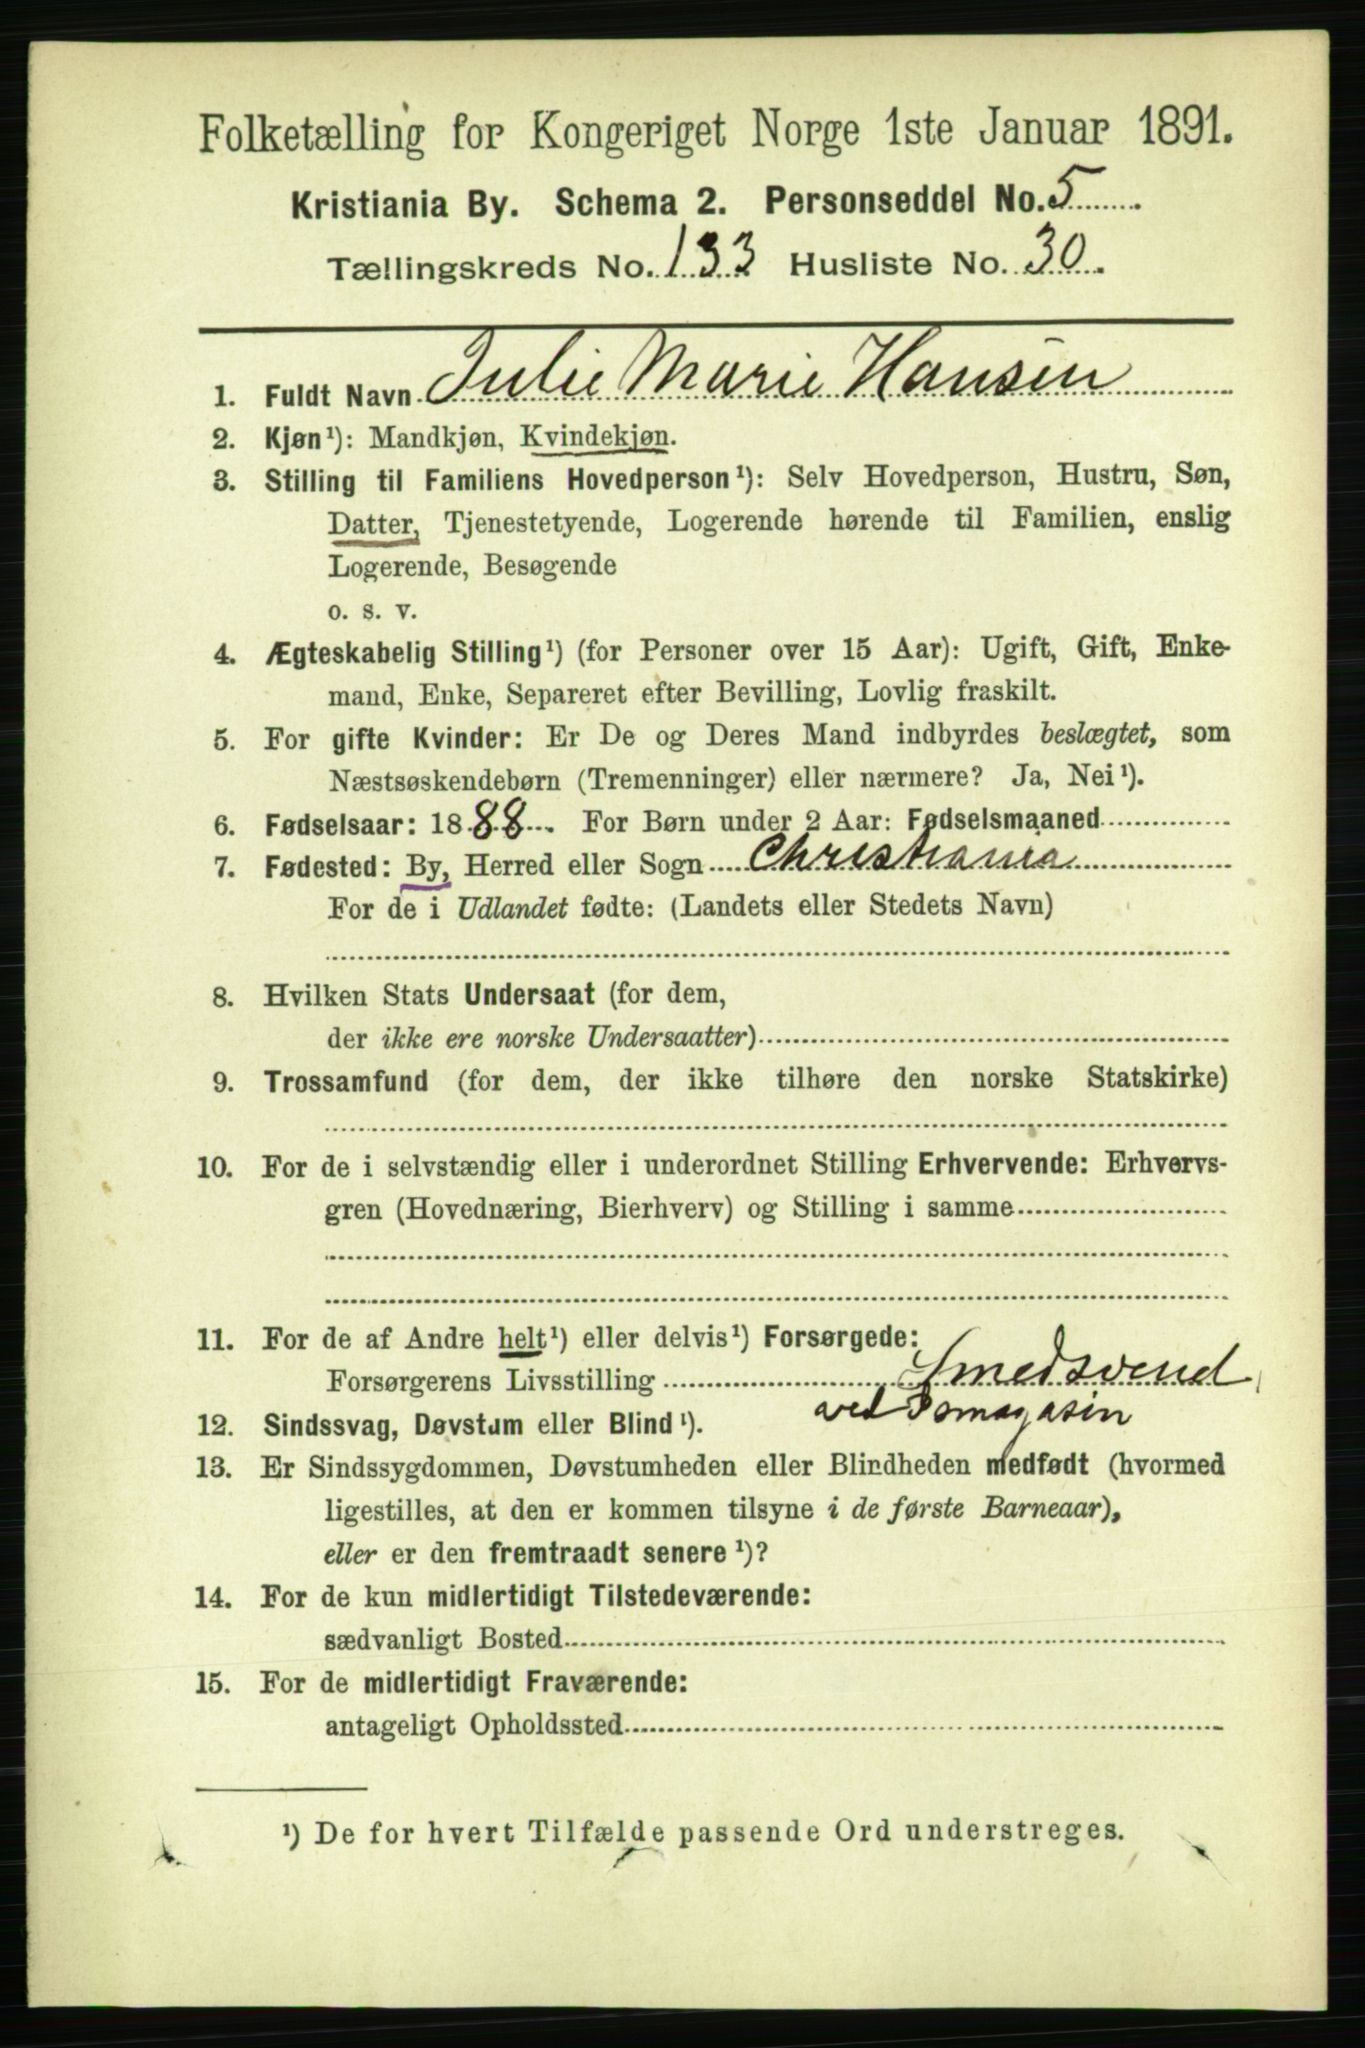 Folketælling for Kongeriget Norge 1ste Januar 1891.
Kristiania By. Schema 2. Personseddel No. 5
Tællingskreds No. 133 Husliste No. 30.
1. Fuldt Navn Julie Marie Hansen
2. Kjøn¹): Mandkjøn, Kvindekjøn.
3. Stilling til Familiens Hovedperson¹): Selv Hovedperson, Hustru, Søn,
Datter, Tjenestetyende, Logerende hørende til Familien, enslig
Logerende, Besøgende
o. s. v.
4. Ægteskabelig Stilling¹) (for Personer over 15 Aar): Ugift, Gift, Enke-
mand, Enke, Separeret efter Bevilling, Lovlig fraskilt.
5. For gifte Kvinder: Er De og Deres Mand indbyrdes beslægtet, som
Næstsøskendebørn (Tremenninger) eller nærmere? Ja, Nei¹).
6. Fødselsaar: 1888. For Børn under 2 Aar: Fødselsmaaned
7. Fødested: By, Herred eller Sogn Christiania
For de i Udlandet fødte: (Landets eller Stedets Navn)
8. Hvilken Stats Undersaat (for dem,
der ikke ere norske Undersaatter)
9. Trossamfund (for dem, der ikke tilhøre den norske Statskirke)
10. For de i selvstændig eller i underordnet Stilling Erhvervende: Erhvervs-
gren (Hovednæring, Bierhverv) og Stilling i samme
11. For de af Andre helt¹) eller delvis¹) Forsørgede:
Forsørgerens Livsstilling Smedsvend
ved
12. Sindssvag, Døvstum eller Blind¹).
13. Er Sindssygdommen, Døvstumheden eller Blindheden medfødt (hvormed
ligestilles, at den er kommen tilsyne i de første Barneaar),
eller er den fremtraadt senere¹)?
14. For de kun midlertidigt Tilstedeværende:
sædvanligt Bosted
15. For de midlertidigt Fraværende:
antageligt Opholdssted
¹) De for hvert Tilfælde passende Ord understreges.